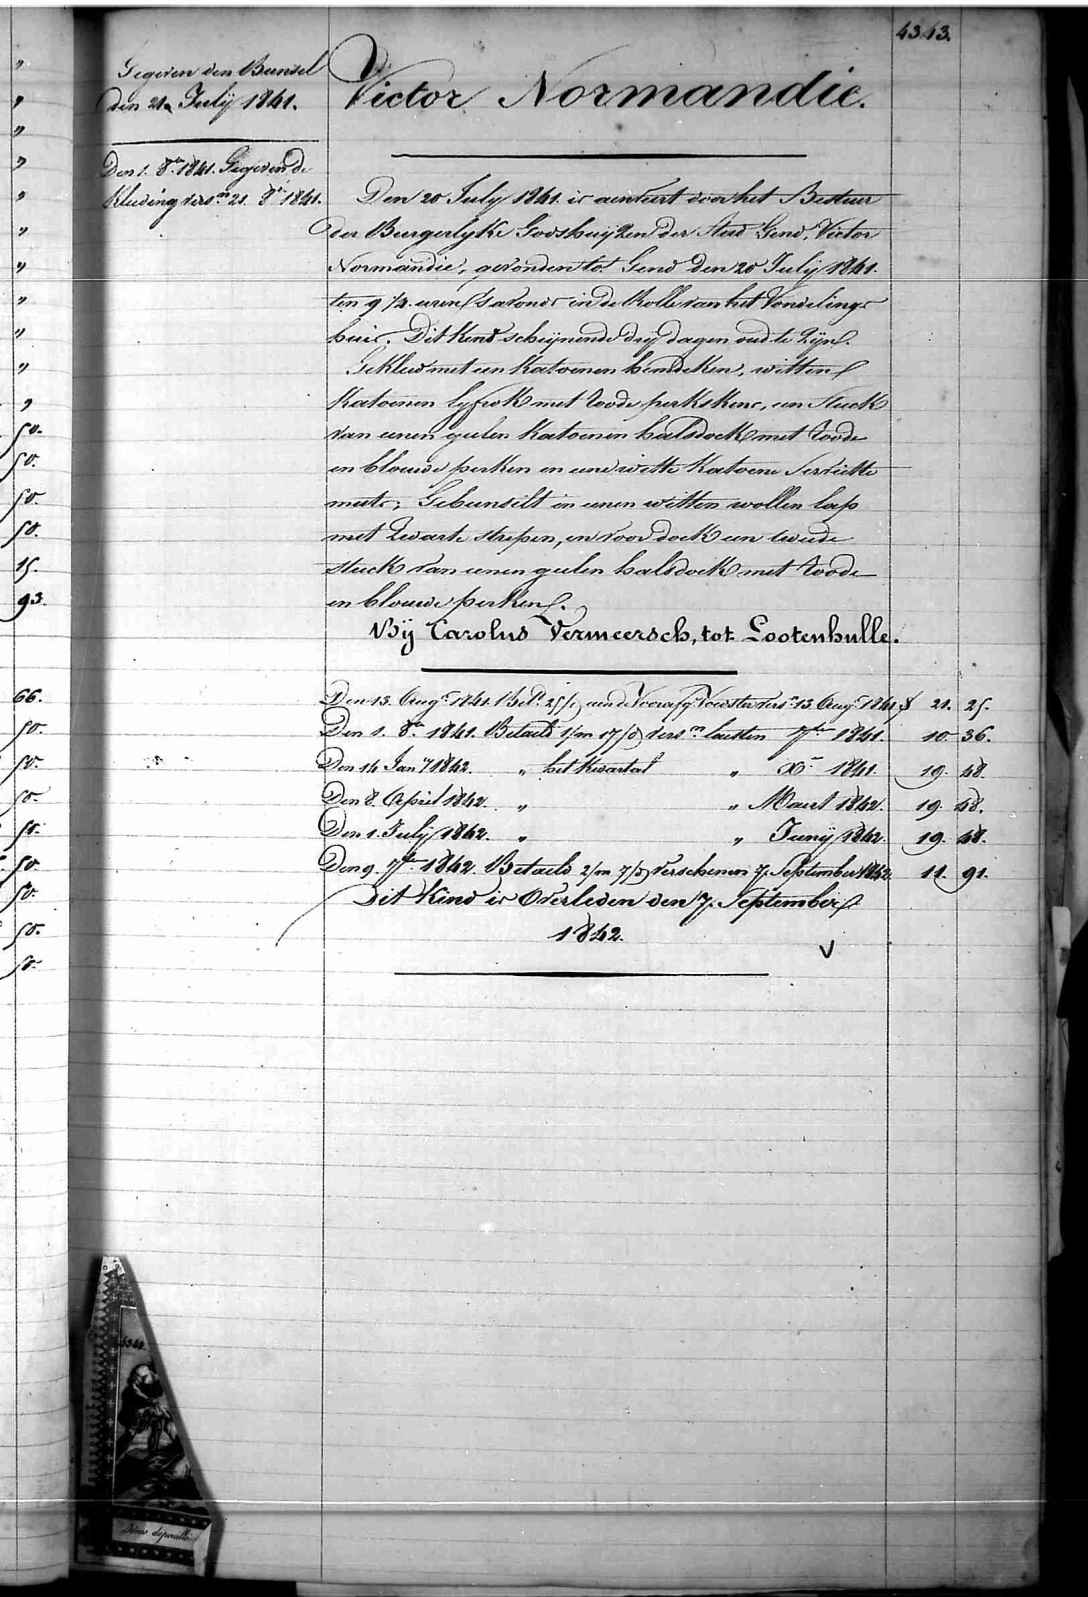 4343.
Gegeven den Bunsel
den 21 July 1841.
Victor Normandie.
Den 1. 8.re 1841. Gegeven de
Kleding vers.n 21. 8.re 1841.
Den 20 July 1841. is aenveert door het Bestuur
der Burgerlyke Godshuyzen der Stad Gend, Victor
Normandie, gevonden tot Gend den 20 July 1841.
ten 9 1/4 uren s'avonds in de Rolle van het Vondelings
huis. Dit Kind schynende dry dagen oud te zyn.
Gekleed met een Katoenen hemdeken, witten
Katoenen lyfrok met roode perkskens, een stuck
van eenen geelen Katoenen halsdoek met roode
en blauwe perken en eene witte Katoene Serviette
muts; Gebunsilt in eenen witten wollen lap
met zwarte strepen, en voor doek een tweede
stuck van eenen geelen halsdoek met roode
en blouwe perken.
Bÿ Carolus Vermeersch, tot Lootenhulle.
Den 13. Aug. 1841. 13 Aug. 1841 21. 25.
Den 1. 8.re 1841. Betaeld 1/m 17/d vers.n lacsten 7bre 1841. 10. 36.
Den 14 Jan.y 1842. " het Kwartael " X.re 1841. 19. 48.
Den 8. April 1842. " " Maert 1842. 19. 48.
Den 1. July 1842. " " Juny 1842. 19. 48.
Den 9. 7bre 1842. Betaeld 2/m 7/d Verschenen 7. September 1842. 11. 91.
Dit Kind is Overleden den 7. September
1842.
V
"
"
"
"
"
"
"
"
"
"
"
50.
50.
50.
50.
15.
93.
66.
50.
50.
50.
50.
50.
50.
50.
50.